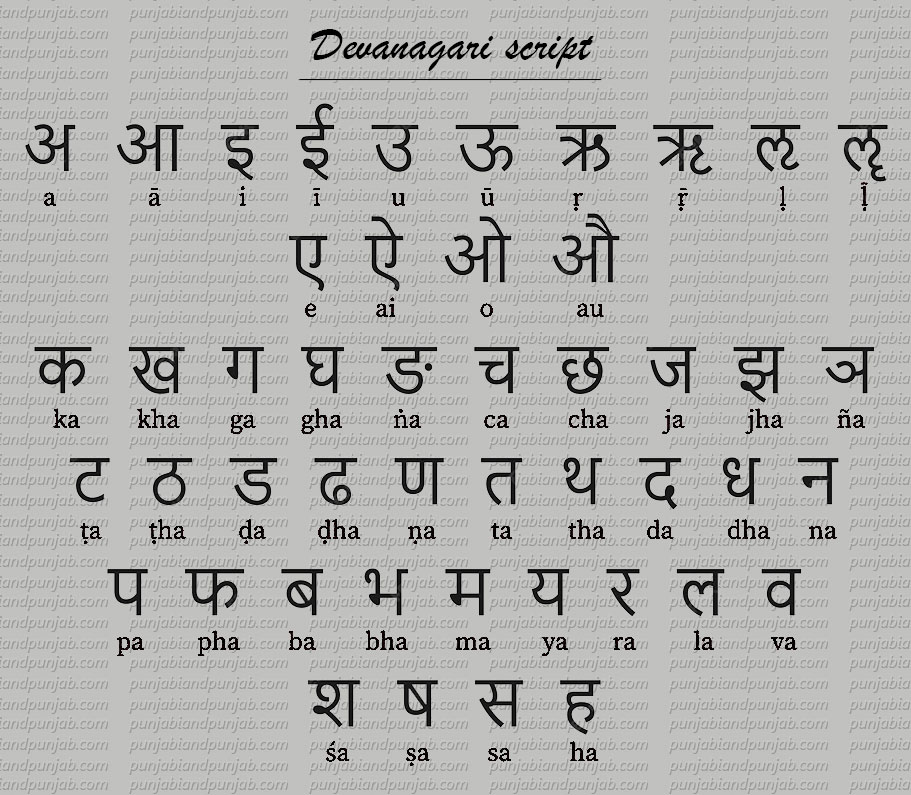 Devanagari script
अ आ इ ई उ ऊ ऋ ॠ ऌ ॡ
a ā i ī u ū ṛ ṝ ḷ ḹ
ए ऐ ओ औ
e ai o au
क ख ग घ ङ च छ ज झ ञ
ka kha ga gha ṅa ca cha ja jha ña
ट ठ ड ढ ण त थ द ध न
ṭa ṭha ḍa ḍha ṇa ta tha da dha na
प फ ब भ म य र ल व
pa pha ba bha ma ya ra la va
श ष स ह
śa ṣa sa ha
punjabiandpunjab.com